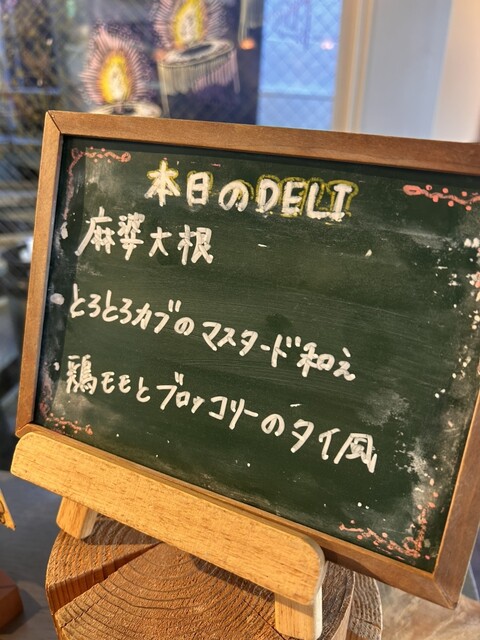 本日のDELI
麻婆大根
とろとろカブのマスタード和え
鶏モモとブロッコリーのタイ風